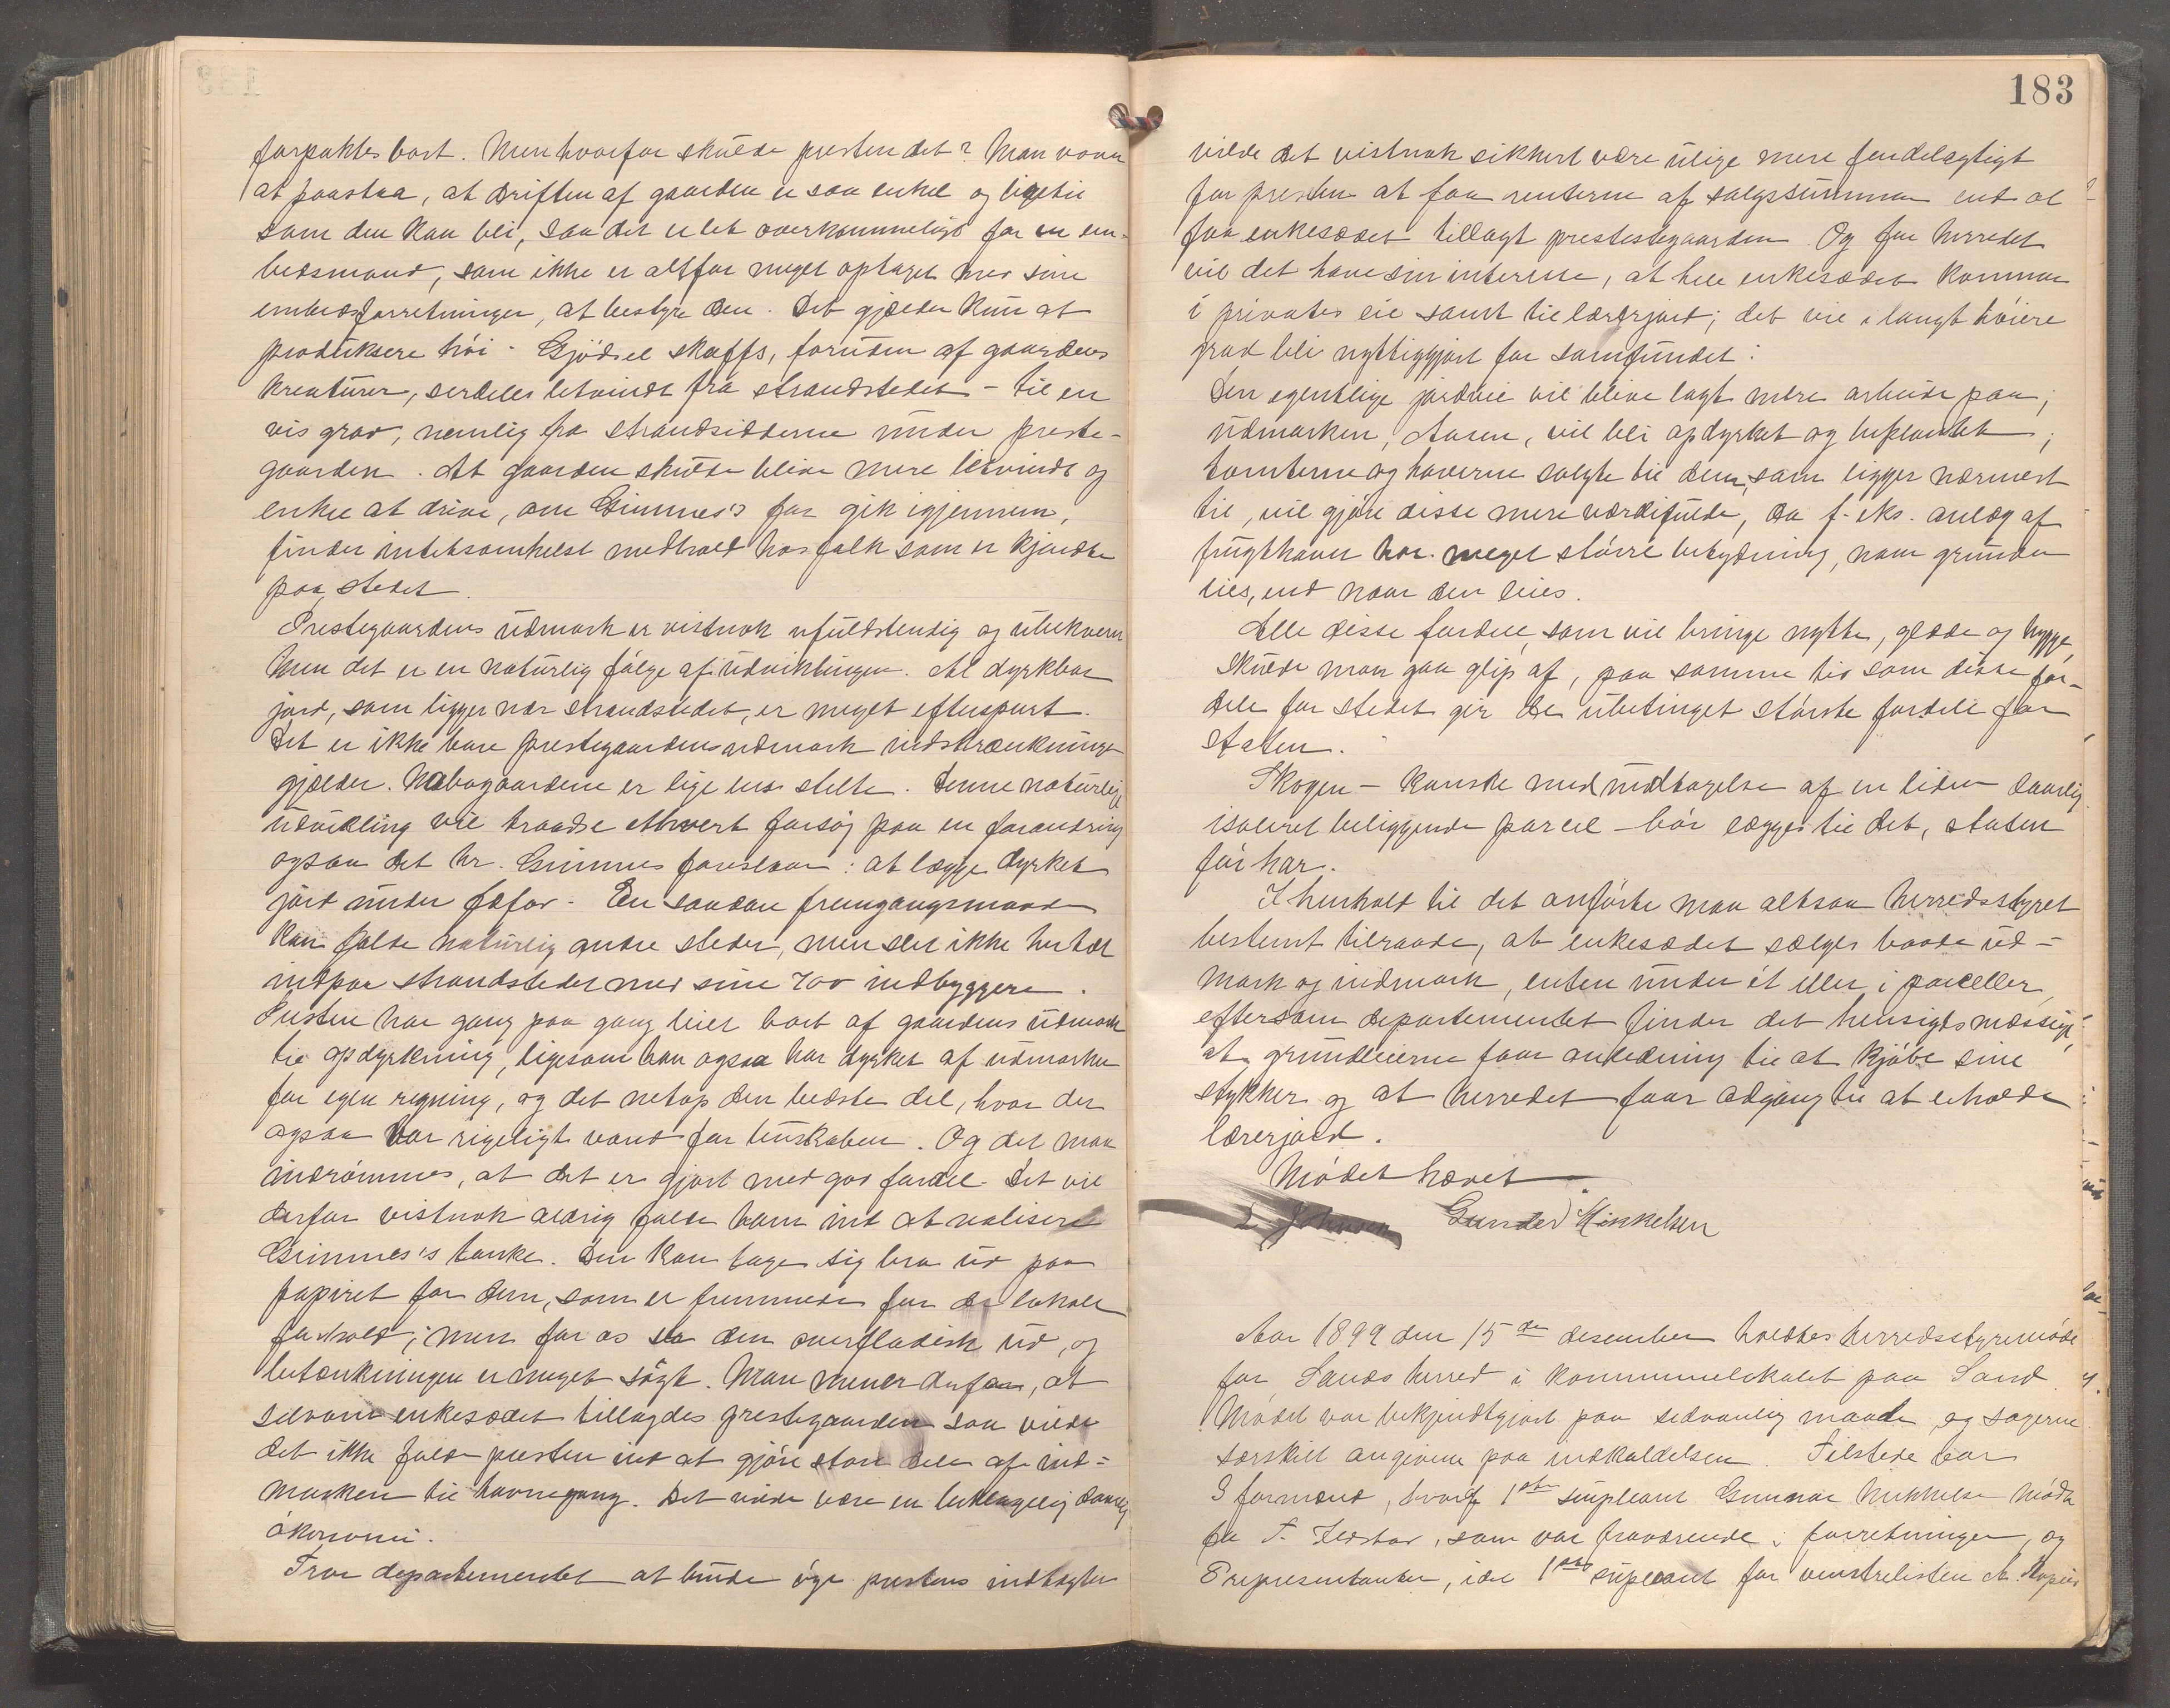 forpaktes bort. Men hvorfor skulde presten det? Man vover
at paastaa, at driften af gaarden er saa enkel og ligetil
som den kan bli, saa det er let overkommeligt for en em-
bedsmand, som ikke er altfor meget optaget med sine
embedsforretninger, at bestyre den. Det gjælder kun at
produksere høi. Gjødsel skaffes, foruden af gaardens
kreaturer, serdeles letvindt fra strandstedet - til en
vis grad, nemlig fra strandsidderne under preste-
gaarden. At gaarden skulde blive mere letvindt og
enkel at drive, om Grimnes's for gik igjennem,
finder intetsomhelst medhold hos folk som er kjendte
paa stedet.
Prestegaardens udmark er vistnok ufuldstendig og ubekvem
Men det er en naturlig følge af udviklingen. Al dyrkbar
jord, som ligger nær strandstedet, er meget efterspurt.
Det er ikke bare prestegaardens udmark indskrænkninger
gjælder. Nabogaardene er lige ens stelte. Denne naturlige
udvikling vil traadse ethvert forsøg paa en forandring
ogsaa det hr. Grimnes foreslaar: at lægge dyrket
jord under fæfar. En saadan fremgangsmaade
kan falde naturlig andre steder, men slet ikke her tæt
indpaa strandstedet med sine 700 indbyggere.
Presten har gang paa gang leiet bort af gaardens udmark
til opdyrkning, ligesom han ogsaa har dyrket af udmarken
for egen regning, og det netop den bedste del, hvor der
ogsaa var rigeligt vand for buskaben. Og det maa
indrømmes, at det er gjort med god fordel. Det vil
derfor vistnok aldrig falde ham ind at realisere
Grimnes's tanke. Den kan tage sig bra ud paa
papiret for dem, som er fremmede for de lokale
forhold; men for os ser den overfladisk ud, og
betænkningen er meget søgt. Man mener derfor, at
selvom enkesædet tillagdes prestegaarden saa vilde
det ikke falde presten ind at gjøre store dele af ind-
marken til havnegang. Det vilde være en beklagelig daarlig
økonomi.
Tror departementet at burde øge prestens indtægter
183
vilde det vistnok sikkert være ulige mere fordelagtigt
for presten at faa renterne af salgssummen end at
faa enkesædet tillagt prestestegaarden. Og for herredet
vil det have sin interesse, at hele enkesædet kommer
i privates eie samt til lærerjord; det vil i langt høiere
grad bli nyttiggjort for samfundet:
Den egentlige jordvei vil blive lagt mere arbeide paa;
udmarken, Aasen, vil bli opdyrket og beplantet;
tomterne og haverne solgte til dem, som ligger nærmest
til, vil gjøre disse mere værdifulde, da f. eks. anlæg af
frugthaver har meget større betydning, naar grunden
eies, end naar den leies.
Alle disse fordele, som vil bringe nytte, glæde og hygge,
skulde man gaa glip af, paa samme tid som disse for-
dele for stedet gir de ubetinget største fordele for
staten.
Skogen - kanske med undtagelse af en liden daarlig
isoleret beliggende parcel - bør lægges til det, staten
før har.
I henhold til det anførte maa altsaa herredsstyret
bestemt tilraade, at enkesædet sælges baade ud-
mark og indmark, enten under ét eller i parceller,
eftersom departementet finder det hensigtsmæssigt,
at grundleierne faar anledning til at kjøbe sine
stykker og at herredet faar adgang til at erholde
lærerjord.
Mødet hævet
Gunder Mikkelsen
Aar 1899 den 15de desember holdtes herredsstyremøde
for Sands herred i kommunelokalet paa Sand.
Mødet var bekjendtgjort paa sedvanlig maade og sagerne
særskilt angivne paa indkaldelsen. Tilstede var
3 formænd, hvoraf 1ste supleant Gunnar Mikkelsen mødte
for T. som var fraværende i forretninger, og
8 repræsentanter, idet 1ste supleant for venstrelisten A.